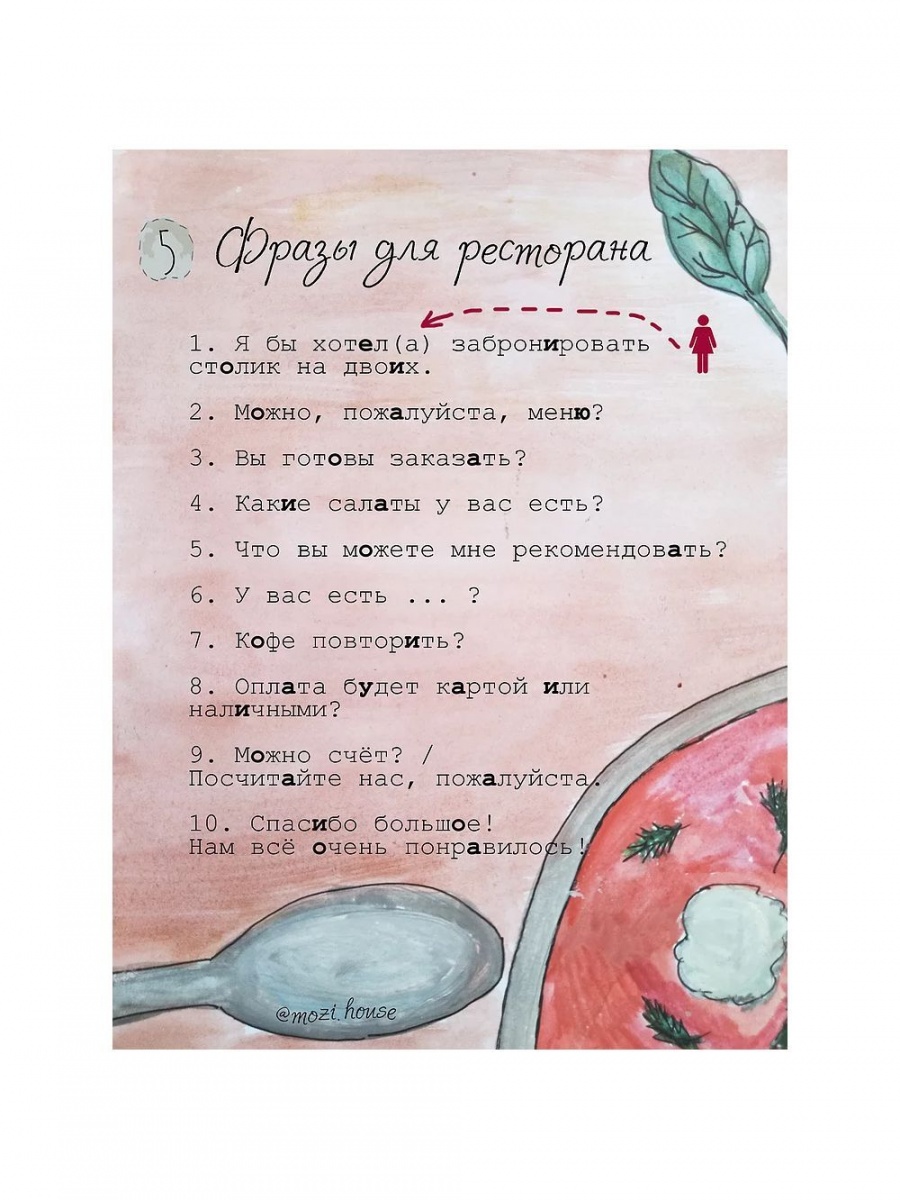 5 Фразы для ресторана
1. Я бы хотел(а) забронировать
столик на двоих.
2. Можно, пожалуйста, меню?
3. Вы готовы заказать?
4. Какие салаты у вас есть?
5. Что вы можете мне рекомендовать?
6. У вас есть ... ?
7. Кофе повторить?
8. Оплата будет картой или
наличными?
9. Можно счёт? /
Посчитайте нас, пожалуйста.
10. Спасибо большое!
Нам всё очень понравилось!
@mozi.house